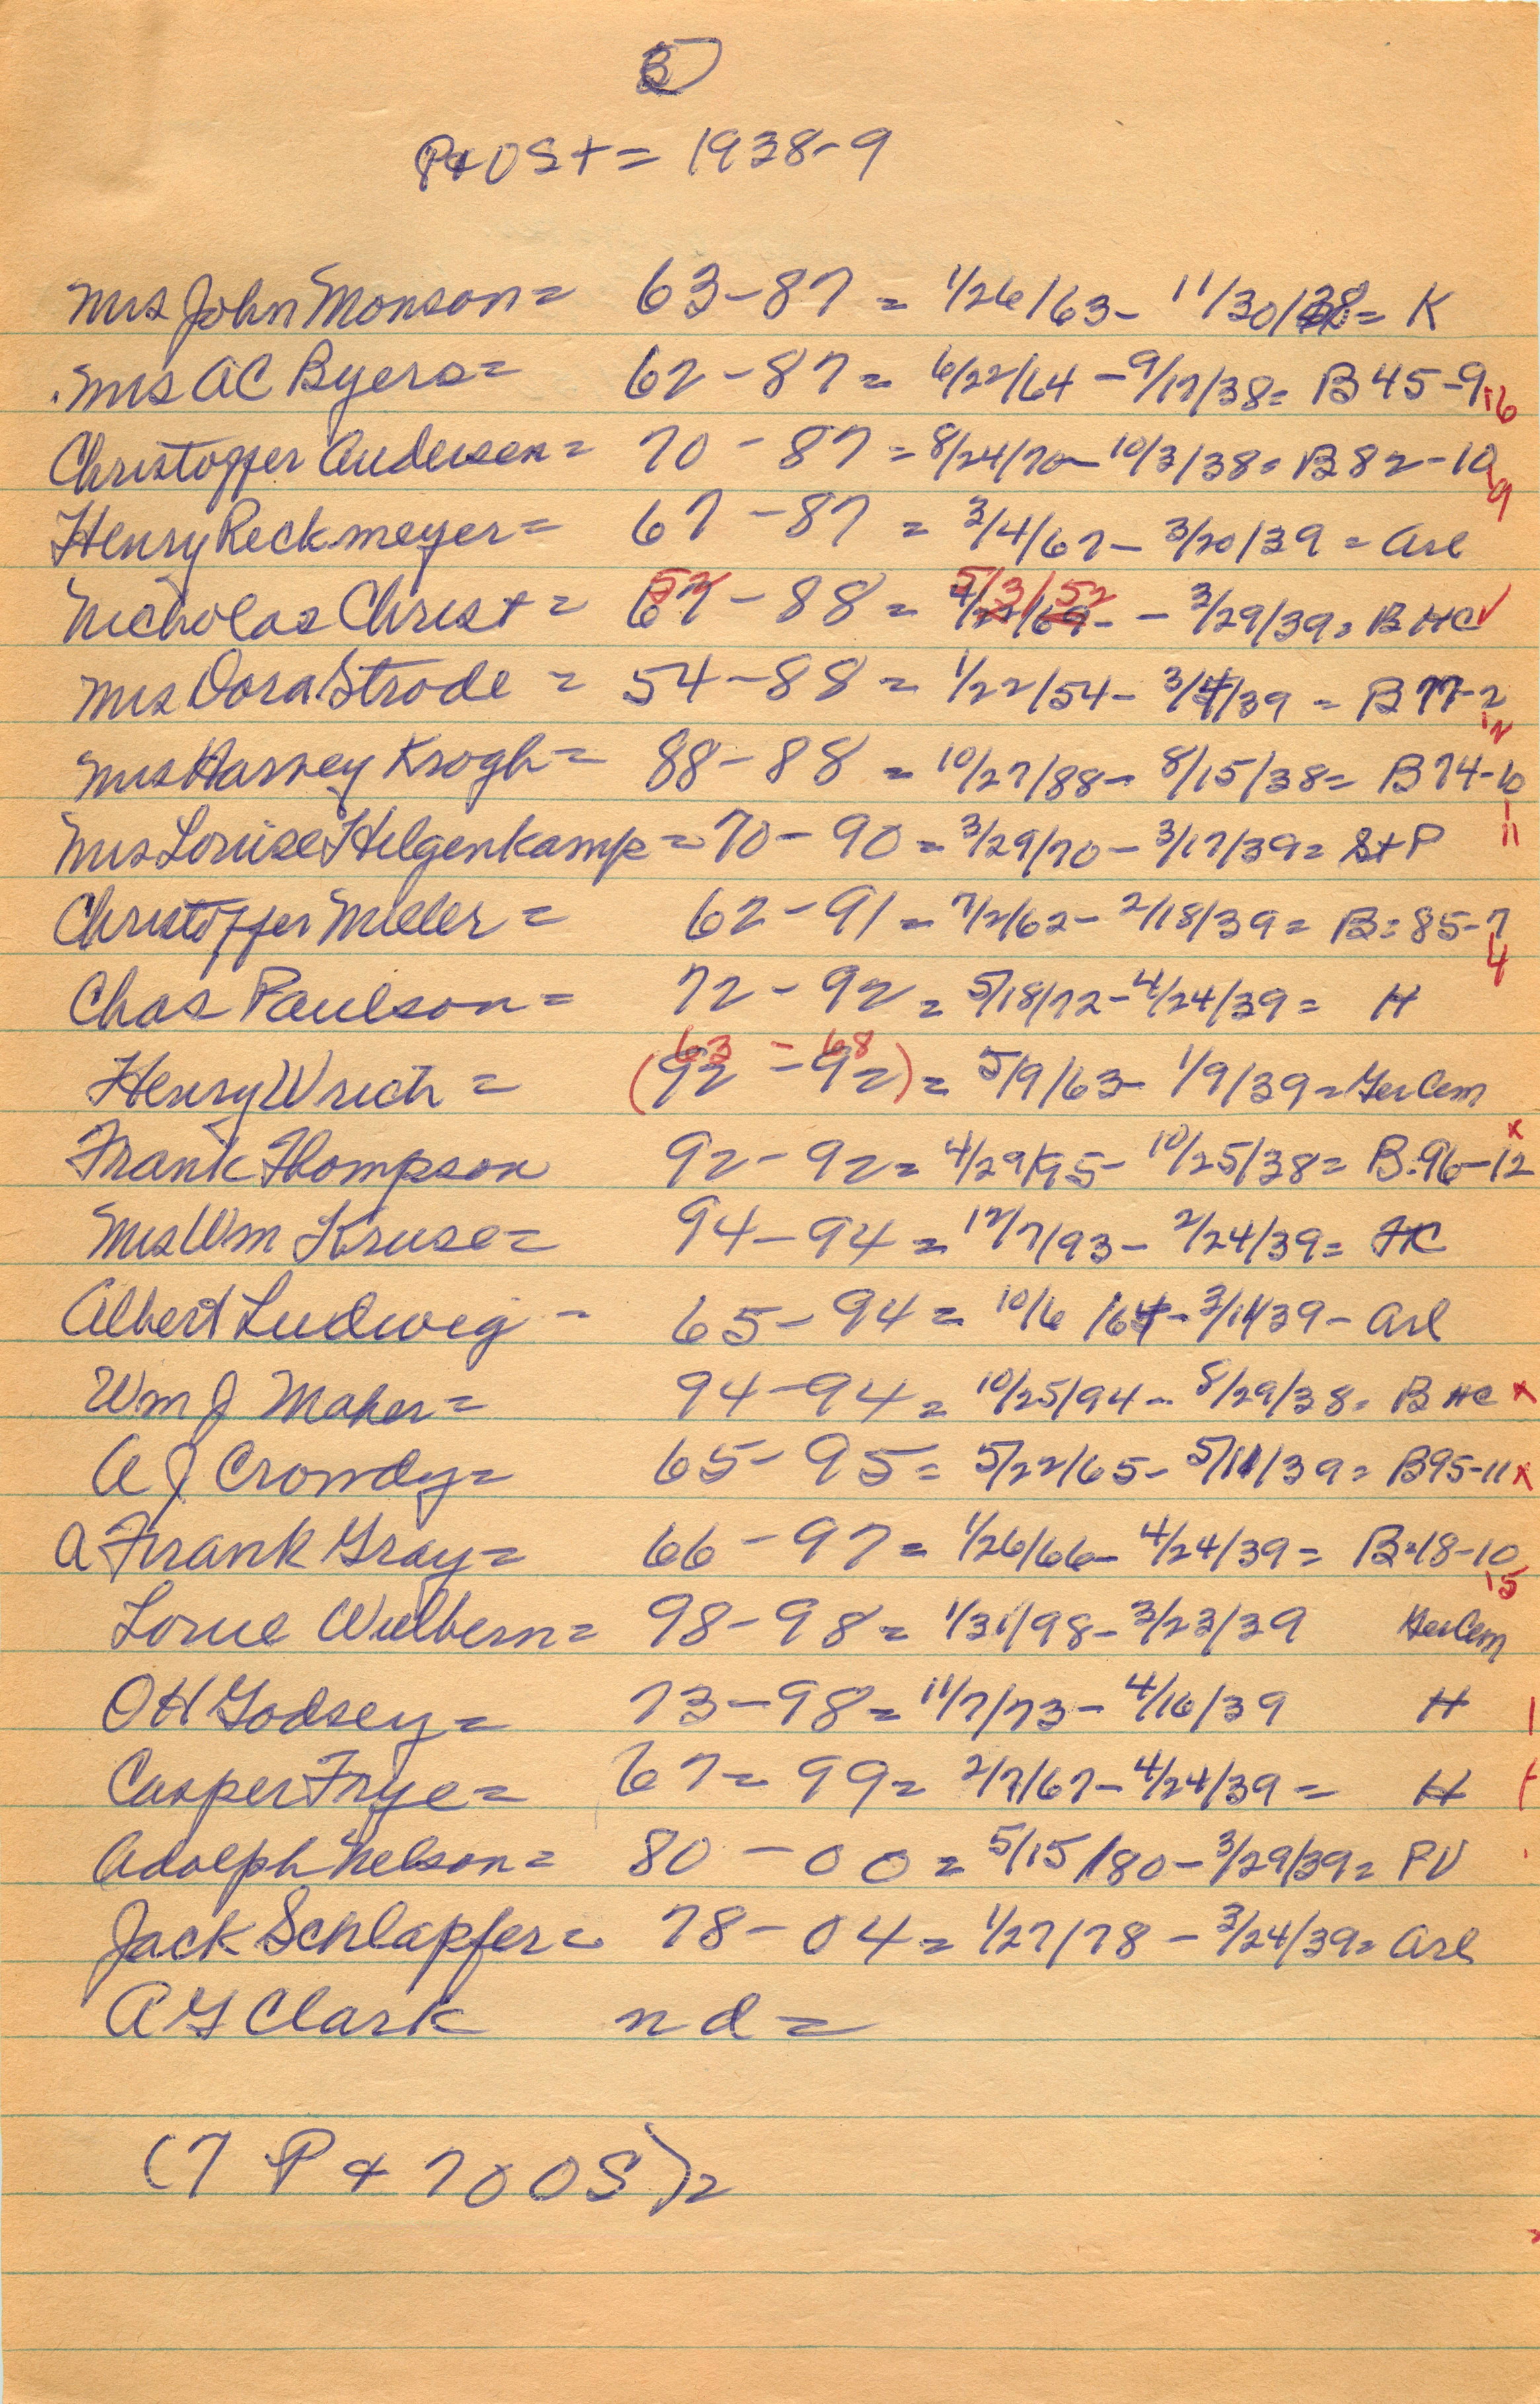 P & OS + = 1938-9
Mrs John Monson = 63-87 = 1/26/63 - 11/30/38 = K
Mrs AC Byers = 62-87 = 6/22/64 - 9/17/38 = B 45-9,16
Christoffer Andersen = 70-87 = 8/24/70 - 10/3/38 = B 82-10,9
Henry Reckmeyer = 67-87 = 3/4/67 - 3/20/39 = Arl
Nicholas Christ = 52-88 = 5/3/52 - 3/29/39 = B HC ✓
Mrs Dora Strode = 54-88 = 1/22/54 - 3/4/39 = B 77-2,12
Mrs Harvey Krogh = 88-88 = 10/27/88 - 8/15/38 = B 74-10,11
Mrs Louise Hilgenkamp = 70-90 = 3/29/70 - 3/17/39 = St P
Christoffer Miller = 62-91 = 7/2/62 - 2/18/39 = B = 85-7,4
Chas Paulson = 72-92 = 5/18/72 - 4/24/39 = H
63 - 68
Henry Wrich = (92-92) = 5/9/63 - 1/9/39 = Ger Cem
Frank Thompson 92-92 = 4/29/95 - 10/25/38 = B.96-12 x
Mrs Wm Kruse = 94-94 = 12/7/93 - 2/24/39 =
Albert Ludwig - 65-94 = 10/6/64 - 3/11/39 - Arl
Wm J Maher = 94-94 = 10/25/94 - 8/29/38 = B HC x
A J Crowdy = 65-95 = 5/22/65 - 5/11/39 = B95-11 x
A Frank Gray = 66-97 = 1/26/66 - 4/24/39 = B=18-10,15
Lorne Wulbern = 98-98 = 1/31/98 - 3/23/39 Ger Cem
OH Godsey = 73-98 = 11/7/73 - 4/16/39 H
Casper Frye = 67=99 = 2/7/67 - 4/24/39 = H
Adolph Nelson = 80-00 = 5/15/80 - 3/29/39 = PV
Jack Schlapfer = 78-04 = 1/27/78 - 3/24/39 = Arl
A G Clark nd =
(7 P & 700S) =